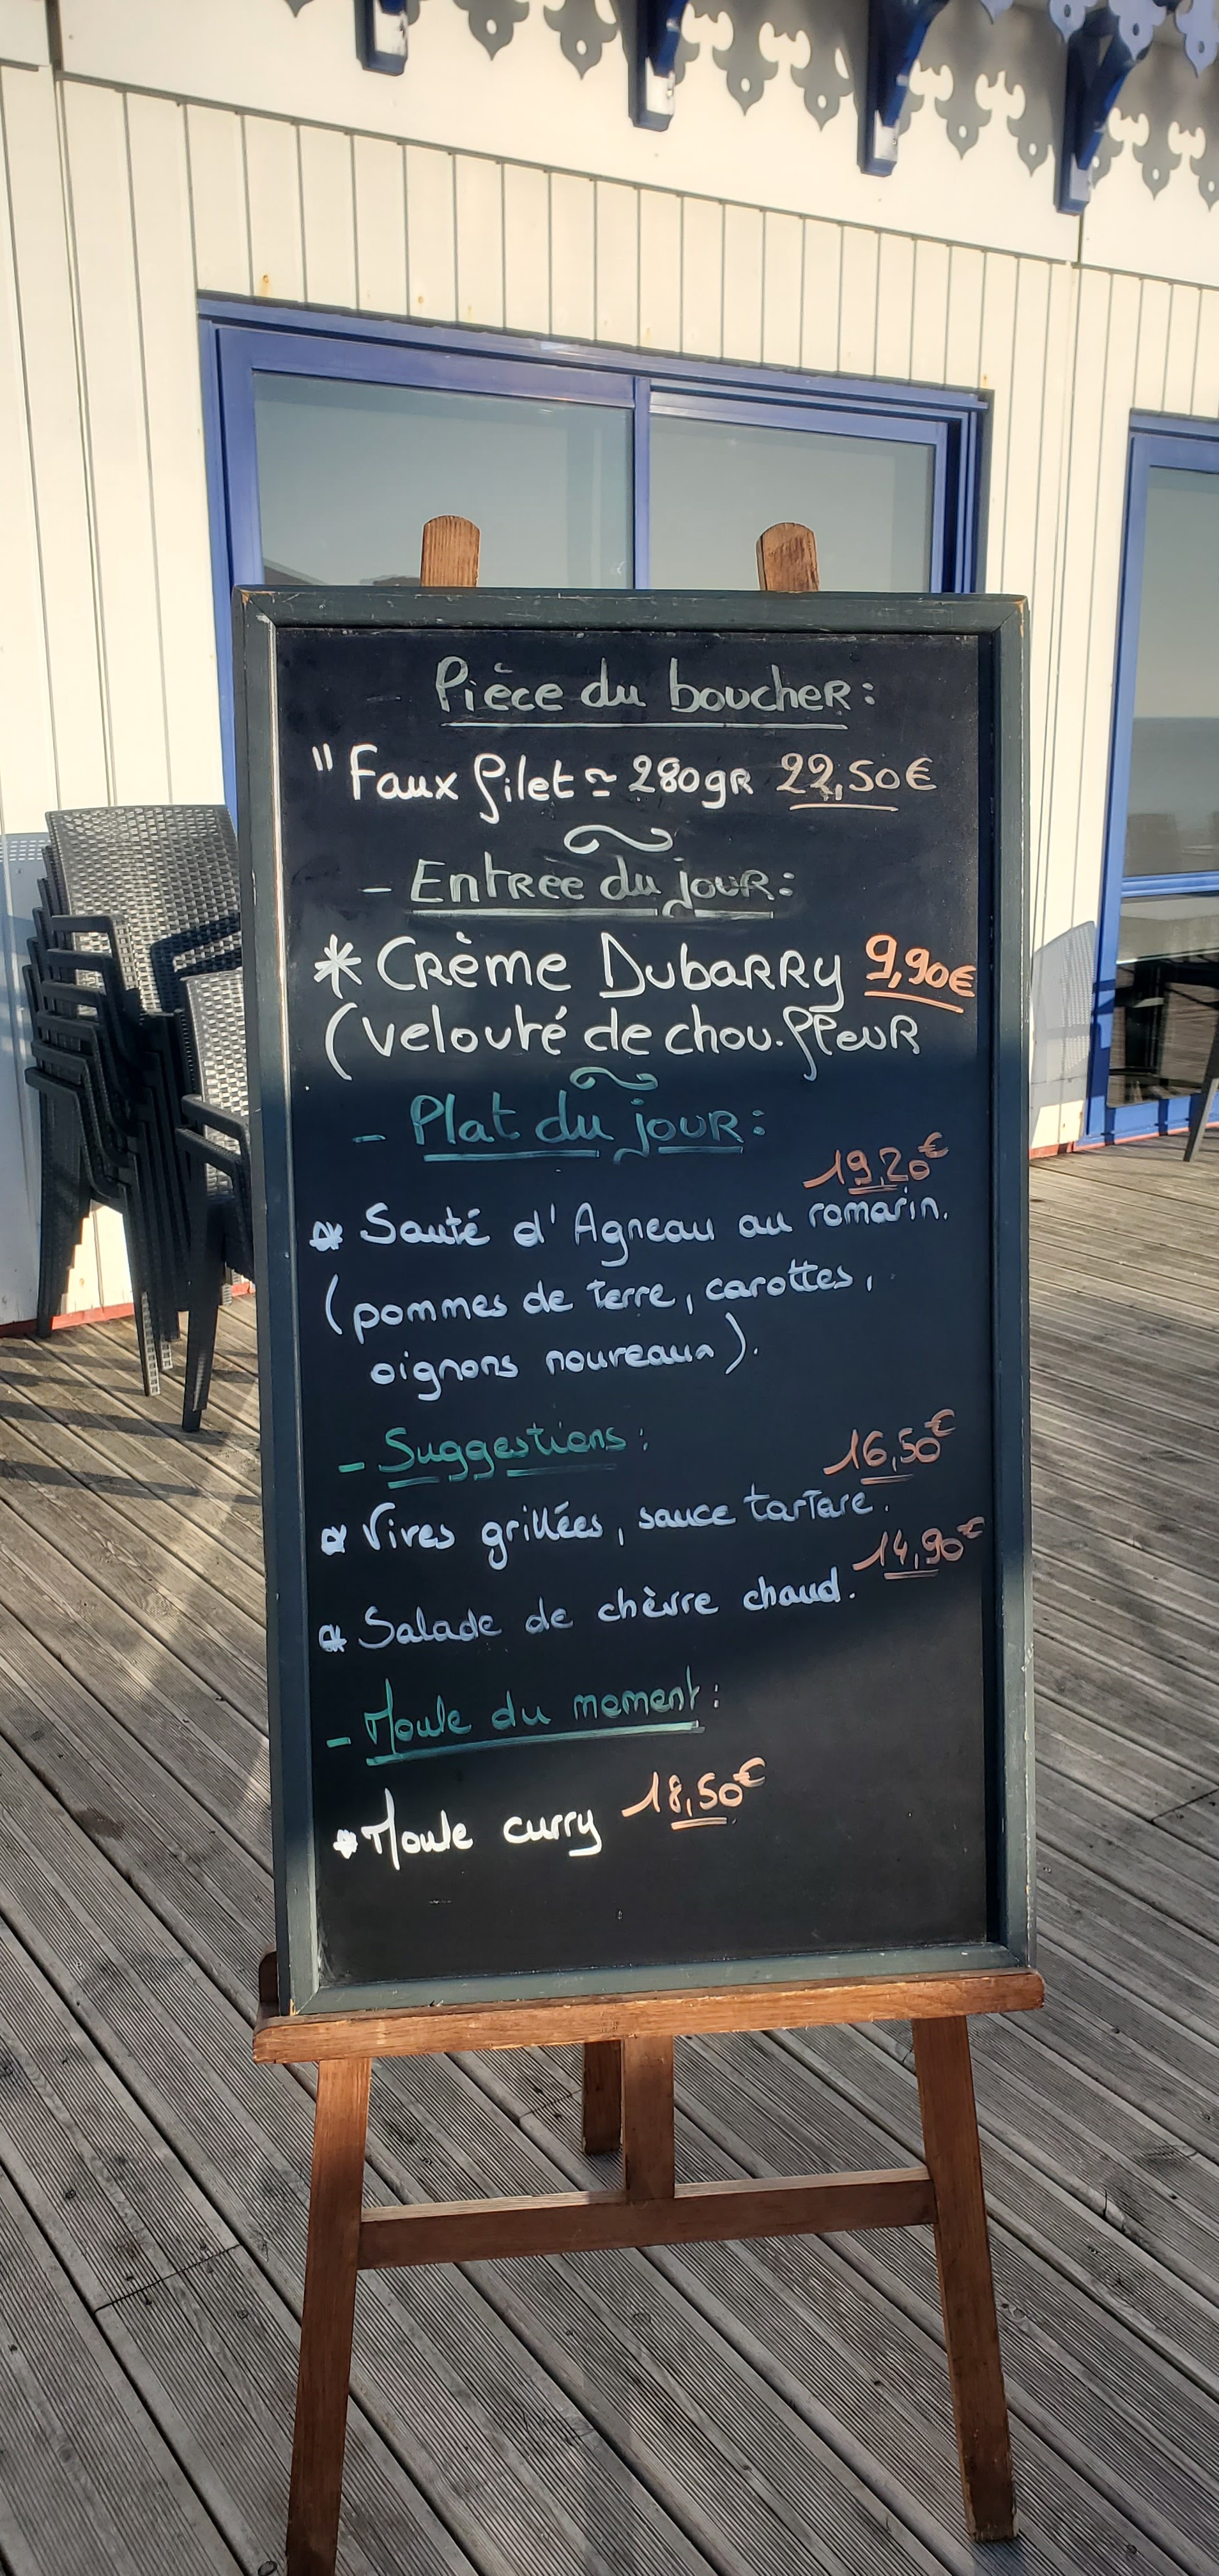 Pièce du boucher:
" Faux filet ≃ 280gr 22,50€
- Entree du jour:
* Crème Dubarry 9,90€
(velouté de chou-fleur
- Plat du jour:
19,20€
* Sauté d'Agneau au romarin.
(pommes de terre, carottes,
oignons nouveaux).
- Suggestions:
16,50€
* Vives grillées, sauce tartare.
14,90€
* Salade de chèvre chaud.
- Moule du moment:
* Moule curry 18,50€